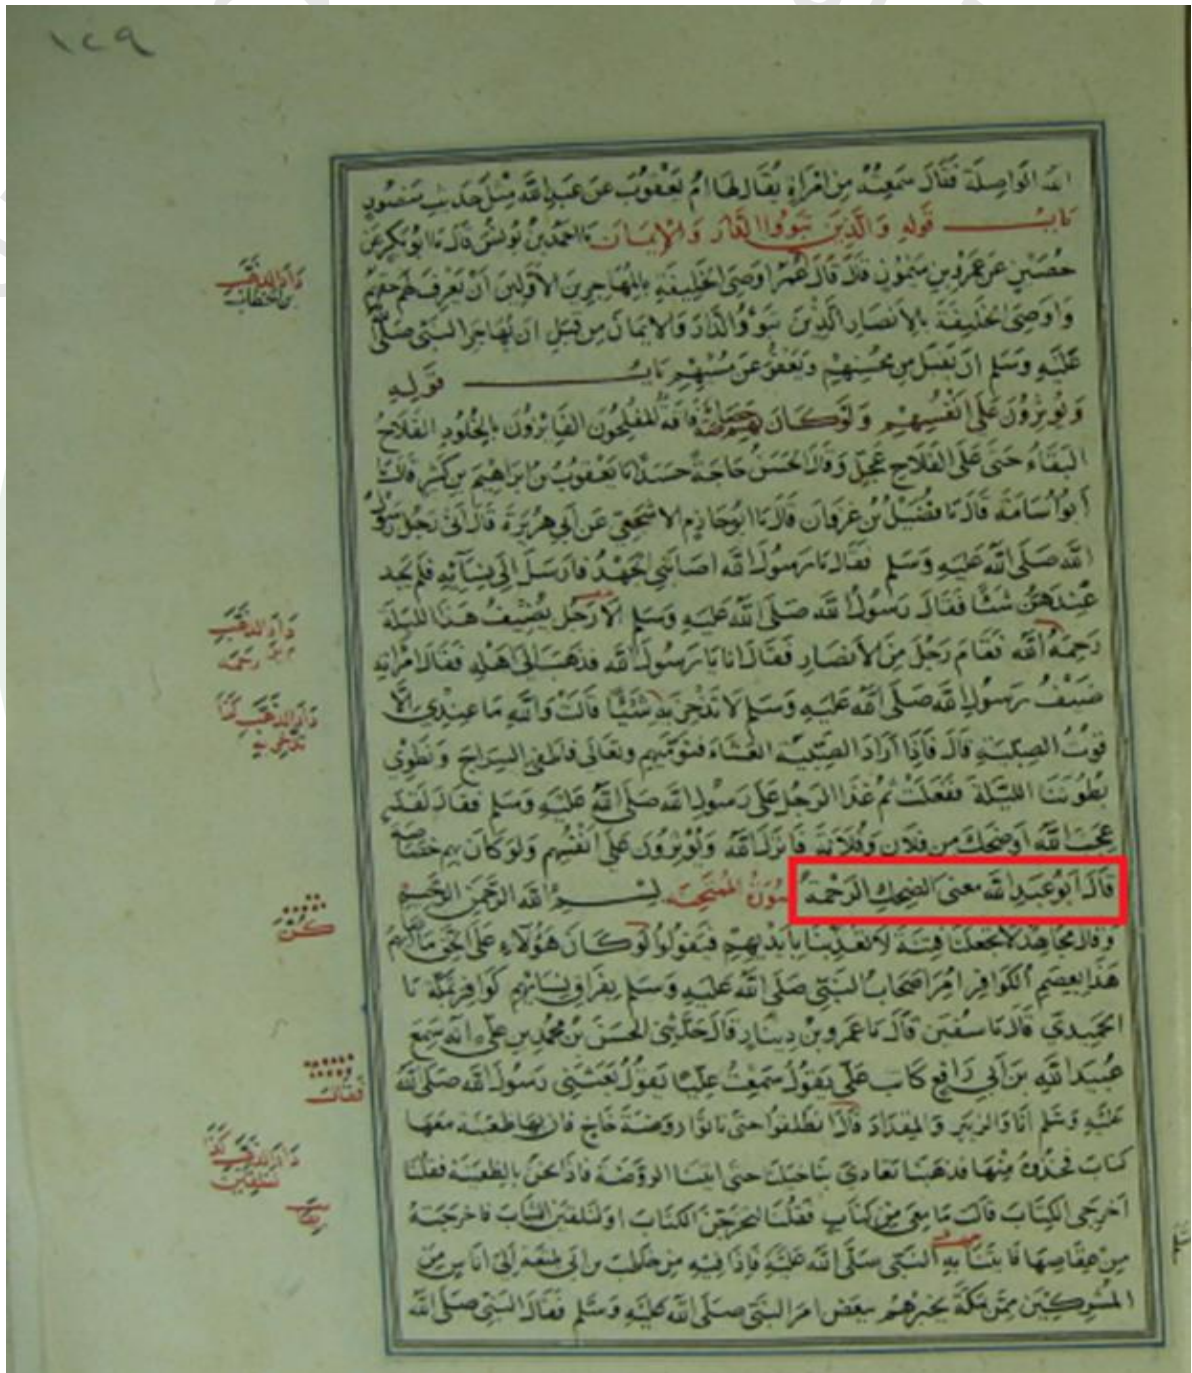 ١٢٩
الله الواصلة فقال سمعته من امرأة يقال لها ام يعقوب عن عبد الله مثل حديث منصور
باب قوله والذين تبوؤا الدار والإيمان نا احمد بن يونس قال نا ابو بكر عن
حصين عن عمرو بن ميمون قال قال عمر اوصي الخليفة بالمهاجرين الأولين أن يعرف لهم حقهم
واوصي الخليفة بالانصار الذين تبوؤا الدار والايمان من قبل ان يهاجر النبي صلى الله
عليه وسلم ان يقبل من محسنهم ويعفو عن مسيئهم باب قوله
ويؤثرون على انفسهم ولو كان بهم خصاصة فاقة المفلحون الفائزون بالخلود الفلاح
البقاء حي على الفلاح عجل وقال الحسن حاجة حسدا نا يعقوب بن ابراهيم بن كثير قال نا
أبو اسامة قال نا فضيل بن غزوان قال نا ابو حازم الاشجعي عن أبي هريرة قال أتى رجل رسول
الله صلى الله عليه وسلم فقال يا رسول الله اصابني الجهد فارسل إلى نسائه فلم يجد
عندهن شئا فقال رسول الله صلى الله عليه وسلم الا رجل يضيف هذا الليلة
رحمه الله فقام رجل من الأنصار فقال انا يا رسول الله فذهب إلى اهله فقال لامراته
ضيف رسول الله صلى الله عليه وسلم لا تدخري به شئيا قالت والله ما عندي الا
قوت الصبية قال فإذا أراد الصبية العشاء فنوميهم وتعالي فاطفئ السراج ونطوي
بطوننا الليلة ففعلت ثم غدا الرجل على رسول الله صلى الله عليه وسلم فقال لقد
عجب الله أو ضحك من فلان وفلانة فانزل الله ويؤثرون على أنفسهم ولو كان بهم خصاصة
قال أبو عبد الله معنى الضحك الرحمة سورة الممتحنة بسم الله الرحمن الرحيم
وقال مجاهد لا تجعلنا فتنة لا تعذبنا بأيديهم فيقولوا لو كان هؤلاء على الحق ما اصابهم
هذا بعصم الكوافر امر اصحاب النبي صلى الله عليه وسلم بفراق نسائهم كوافر بمكة نا
الحميدي قال نا سفين قال نا عمرو بن دينار قال حدثني الحسن بن محمد بن علي انه سمع
عبيد الله بن أبي رافع كاتب علي يقول سمعت عليا يقول بعثني رسول الله صلى الله
عليه وسلم أنا والزبير والمقداد قال انطلقوا حتى تاتوا روضة خاخ فان بها ظعينة معها
كتاب فخذوه منها فذهبنا تعادي بنا خيلنا حتى اتينا الروضة فاذا نحن بالظعينة فقلنا
أخرجي الكتاب قالت ما معي من كتاب فقلنا لتخرجن الكتاب او لنلقين الثياب فاخرجته
من عقاصها فاتينا به النبي صلى الله عليه فإذا فيه من حاطب بن ابي بلتعة إلى اناس من
المشركين ممن بمكة يخبرهم ببعض امر النبي صلى الله عليه وسلم فقال النبي صلى الله
بن الخطاب